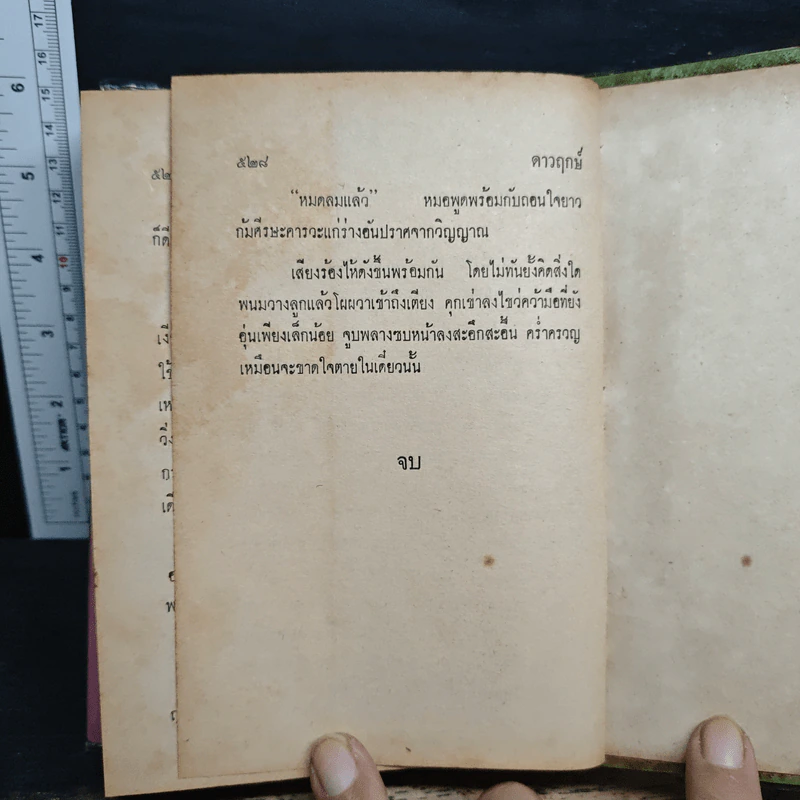 ๕๒๘ ดาวฤกษ์
"หมดลมแล้ว" หมอพูดพร้อมกับถอนใจยาว
ก้มศีรษะคารวะแก่ร่างอันปราศจากวิญญาณ
เสียงร้องไห้ดังขึ้นพร้อมกัน โดยไม่ทันยั้งคิดสิ่งใด
พนมวางลูกแล้วโผผวาเข้าถึงเตียง คุกเข่าลงไขว่คว้ามือที่ยัง
อุ่นเพียงเล็กน้อย จูบพลางซบหน้าลงสะอึกสะอื้น คร่ำครวญ
เหมือนจะขาดใจตายในเดี๋ยวนั้น
จบ